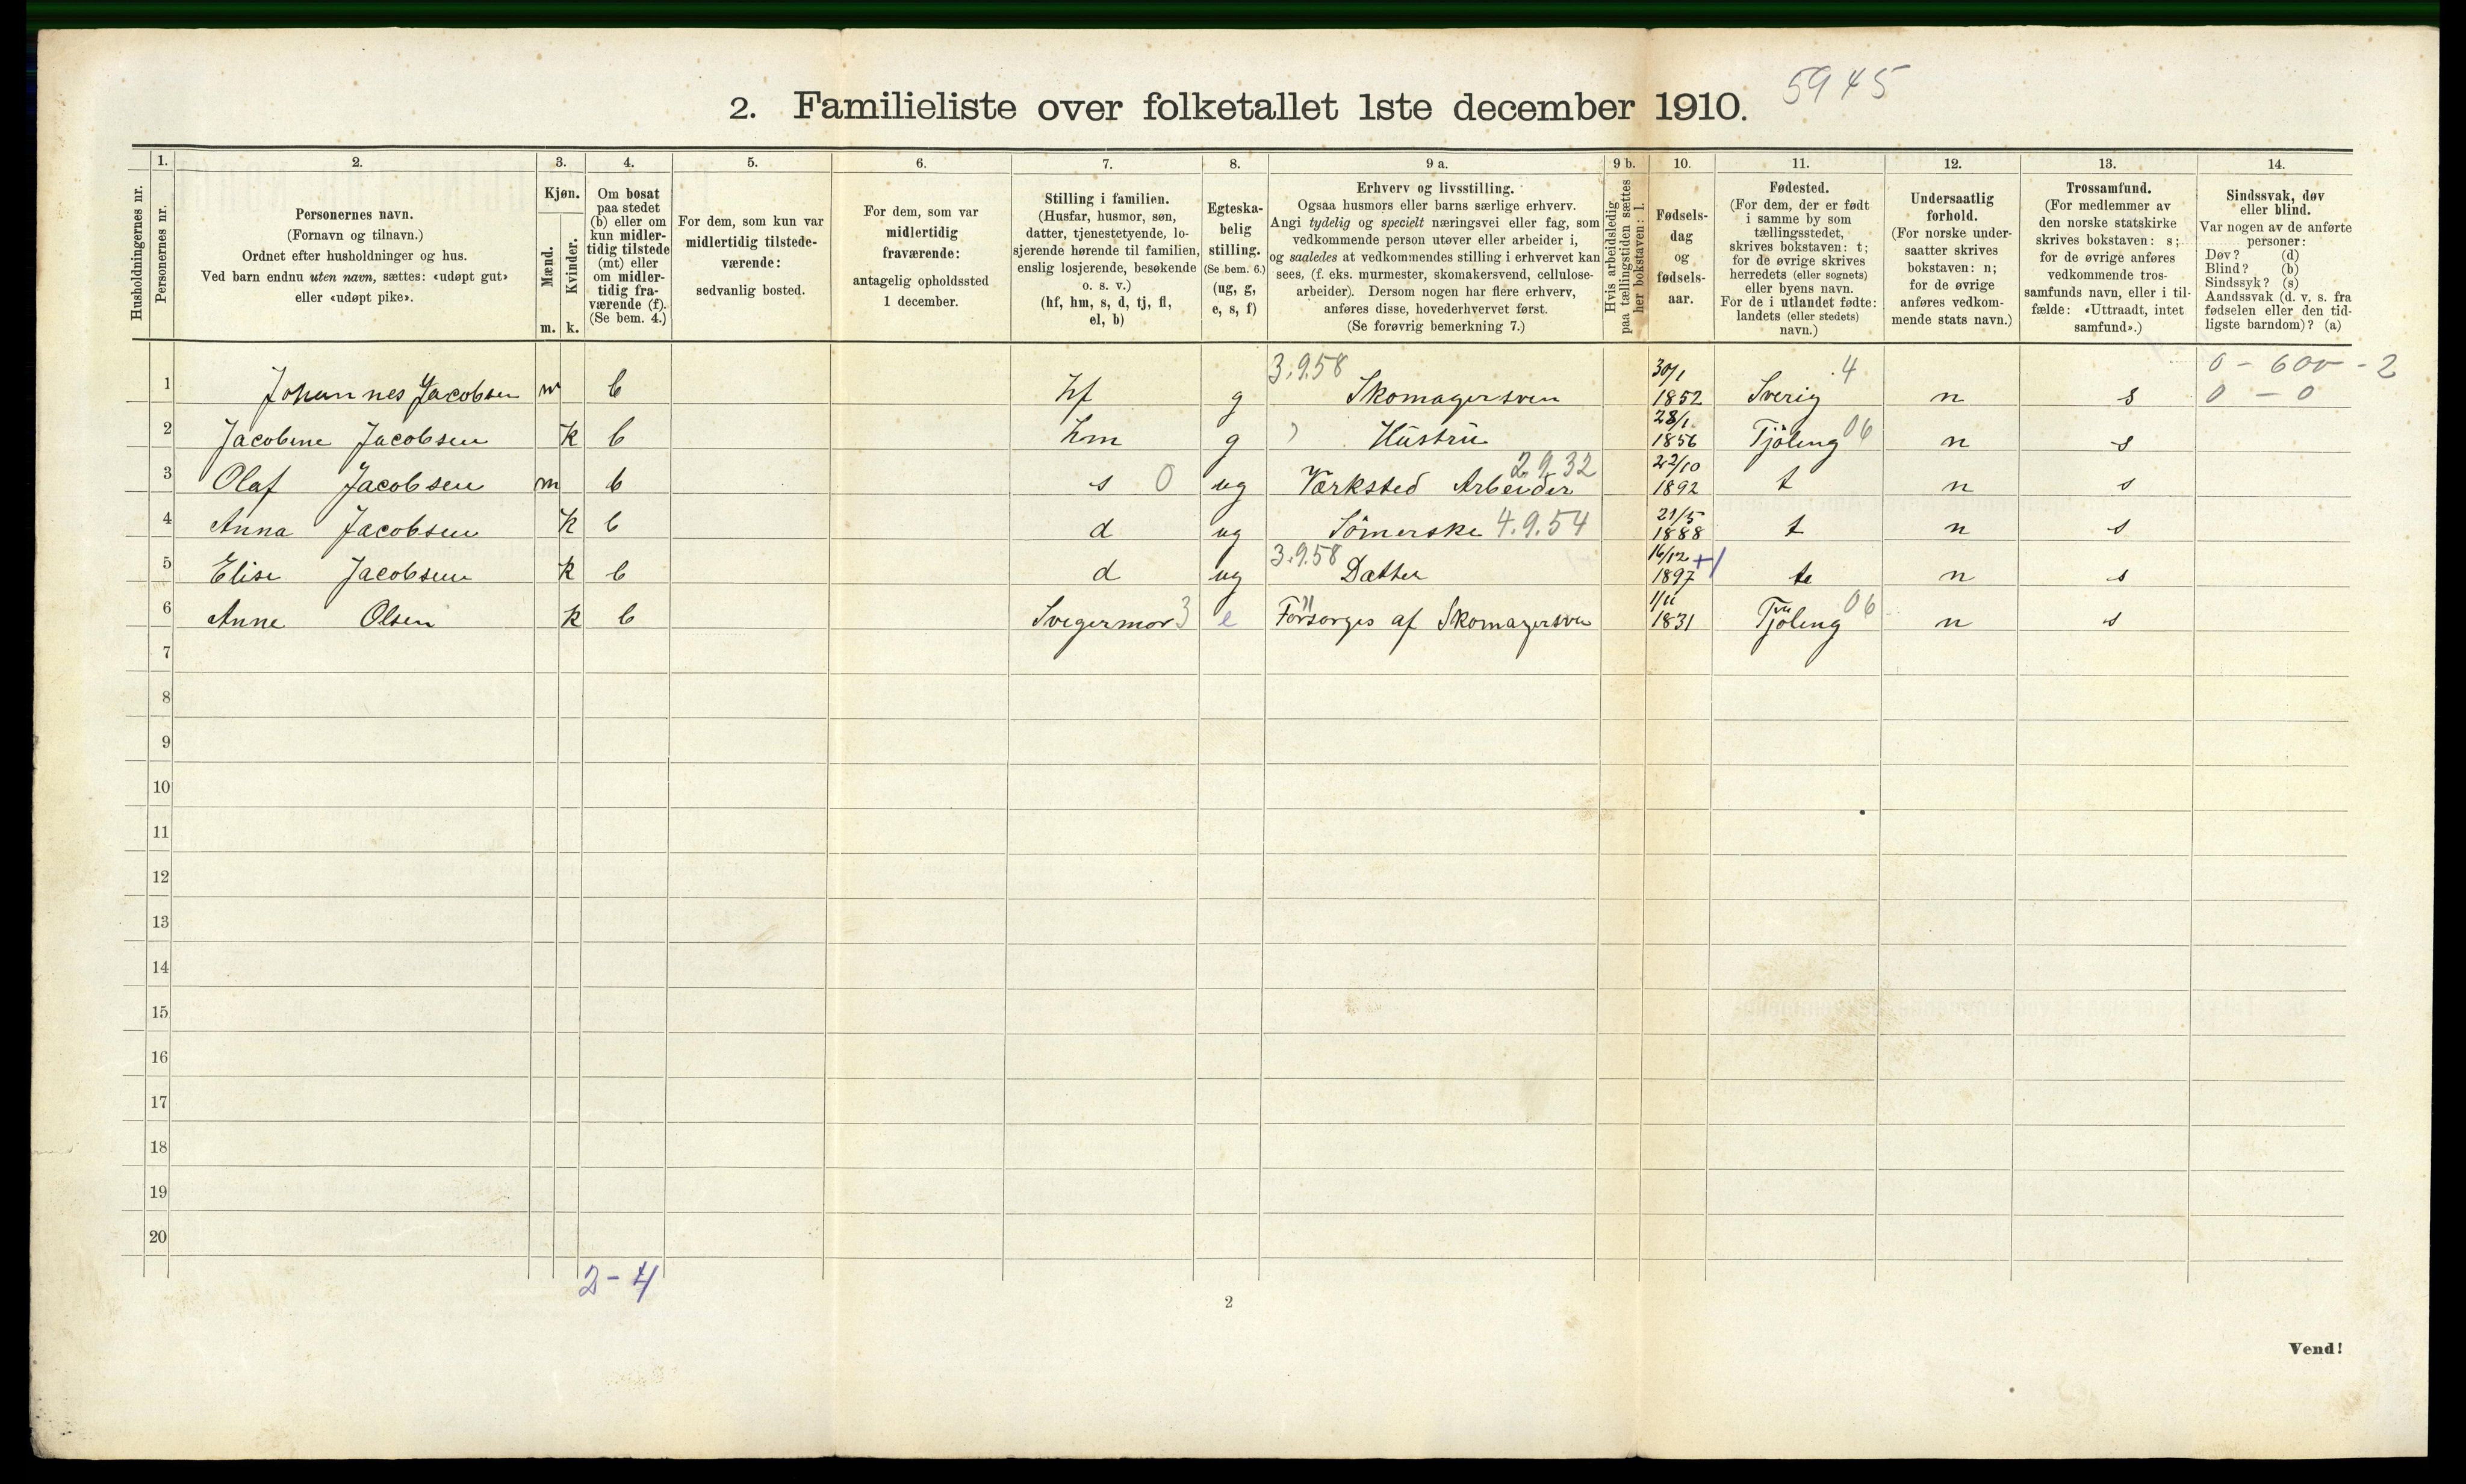 5945
2. Familieliste over folketallet 1ste december 1910.
Husholdningernes nr.
1.
Personernes nr.
2.
Personernes navn.
(Fornavn og tilnavn.)
Ordnet efter husholdninger og hus.
Ved barn endnu uten navn, sættes: «udøpt gut»
eller «udøpt pike».
3.
Kjøn.
Mænd.
Kvinder.
m. k.
4.
Om bosat
paa stedet
(b) eller om
kun midler-
tidig tilstede
(mt) eller
om midler-
tidig fra-
værende (f).
(Se bem. 4.)
5.
For dem, som kun var
midlertidig tilstede-
værende:
sedvanlig bosted.
6.
For dem, som var
midlertidig
fraværende:
antagelig opholdssted
1 december.
7.
Stilling i familien.
(Husfar, husmor, søn,
datter, tjenestetyende, lo-
sjerende hørende til familien,
enslig losjerende, besøkende
o. s. v.)
(hf, hm, s, d, tj, fl,
el, b)
8.
Egteska-
belig
stilling.
(Se bem. 6.)
(ug, g,
e, s, f)
9 a.
Erhverv og livsstilling.
Ogsaa husmors eller barns særlige erhverv.
Angi tydelig og specielt næringsvei eller fag, som
vedkommende person utøver eller arbeider i,
og saaledes at vedkommendes stilling i erhvervet kan
sees, (f. eks. murmester, skomakersvend, cellulose-
arbeider). Dersom nogen har flere erhverv,
anføres disse, hovederhvervet først.
(Se forøvrig bemerkning 7.)
9 b.
Hvis arbeidsledig
paa tællingstiden sættes
her bokstaven: l.
10.
Fødsels-
dag
og
fødsels-
aar.
11.
Fødested.
(For dem, der er født
i samme by som
tællingsstedet,
skrives bokstaven: t;
for de øvrige skrives
herredets (eller sognets)
eller byens navn.
For de i utlandet fødte:
landets (eller stedets)
navn.)
12.
Undersaatlig
forhold.
(For norske under-
saatter skrives
bokstaven: n;
for de øvrige
anføres vedkom-
mende stats navn.)
13.
Trossamfund.
(For medlemmer av
den norske statskirke
skrives bokstaven: s;
for de øvrige anføres
vedkommende tros-
samfunds navn, eller i til-
fælde: «Uttraadt, intet
samfund».)
14.
Sindssvak, døv
eller blind.
Var nogen av de anførte
personer:
Døv? (d)
Blind? (b)
Sindssyk? (s)
Aandssvak (d. v. s. fra
fødselen eller den tid-
ligste barndom)? (a)
3.9.58 30/1 4 0 - 600 - 2
1 Johannes Jacobsen m b hf g Skomagersven 1852 Sverig n s 0 - 0
28/1
2 Jacobine Jacobsen k b hm g Hustru 1856 Tjöling 06 n s
2.9.32 22/10
3 Olaf Jacobsen m b s 0 ug Værksted Arbeider 1892 t n s
21/5
4 Anna Jacobsen k b d ug Sömerske 4.9.54 1888 t n s
3.9.58 16/12 +1
5 Elise Jacobsen k b d ug Datter 1897 t n s
1/11
6 Anne Olsen k b Svigermor 3 e Forsørges af Skomagersven 1831 Tjöling 06 n s
7
8
9
10
11
12
13
14
15
16
17
18
19
20
2-4
2
Vend!